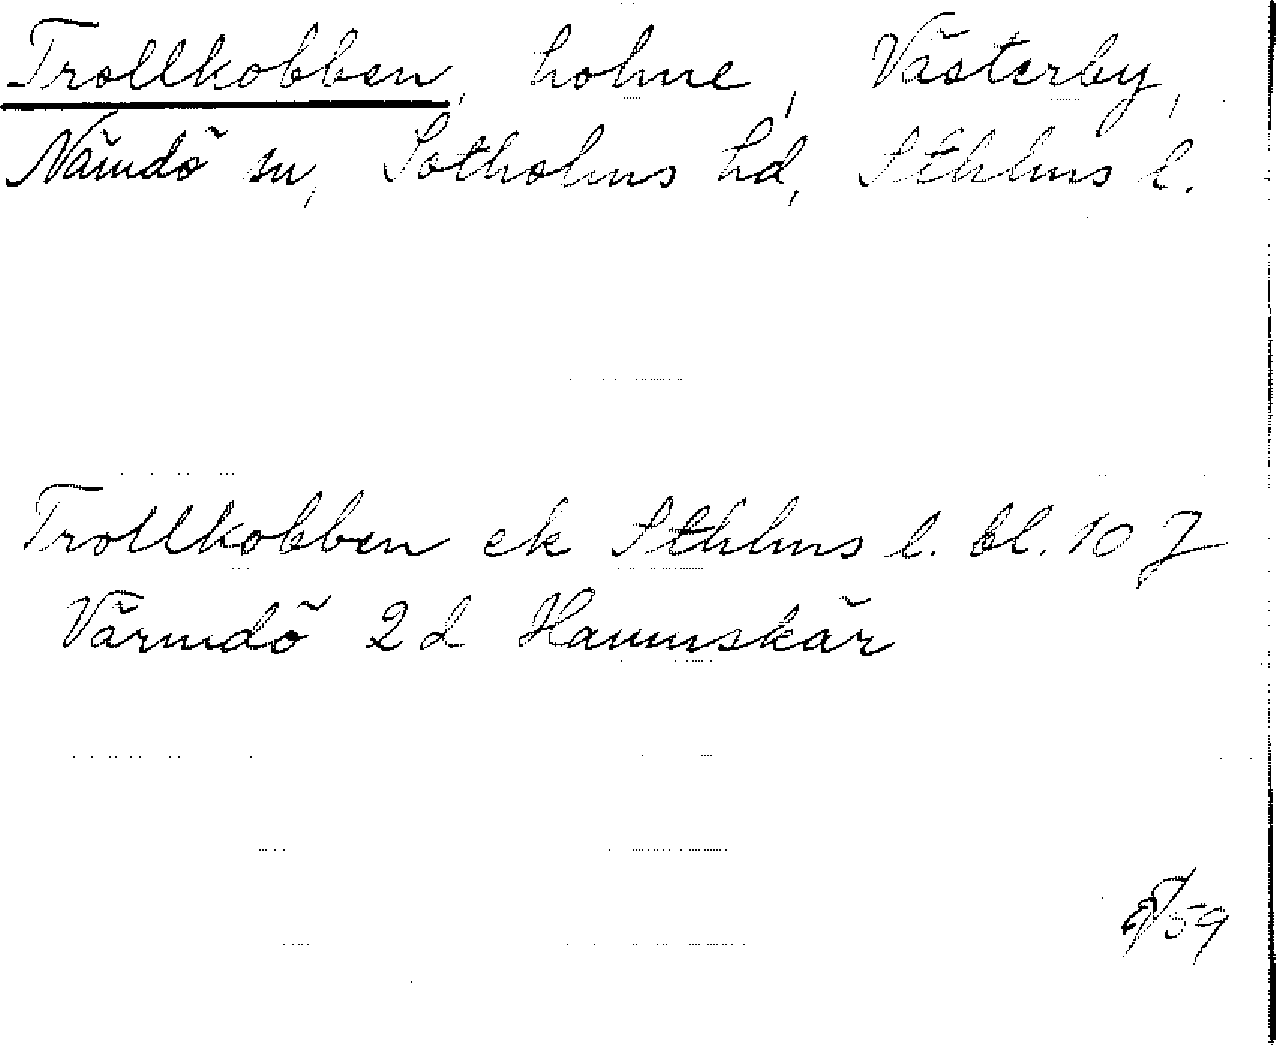 Trollkobben, holme, Västerby,
Nämdö sn, Sotholms hd, Sthlms l.
Trollkobben ek Sthlms l. bl. 10 J
Värmdö 2 d Hamnskär
59